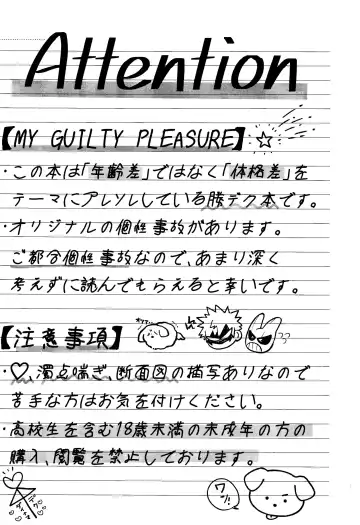 Attention
【MY GUILTY PLEASURE】
・この本は「年齢差」ではなく「体格差」を
テーマにアレソレしている勝デク本です。
・オリジナルの個性事故があります。
ご都合個性事故なので、あまり深く
考えずに読んでもらえると幸いです。
【注意事項】
・♡、濁点喘ぎ、断面図の描写ありなので
苦手な方はお気を付けください。
・高校生を含む18歳未満の未成年の方の
購入、閲覧を禁止しております。
ワン!